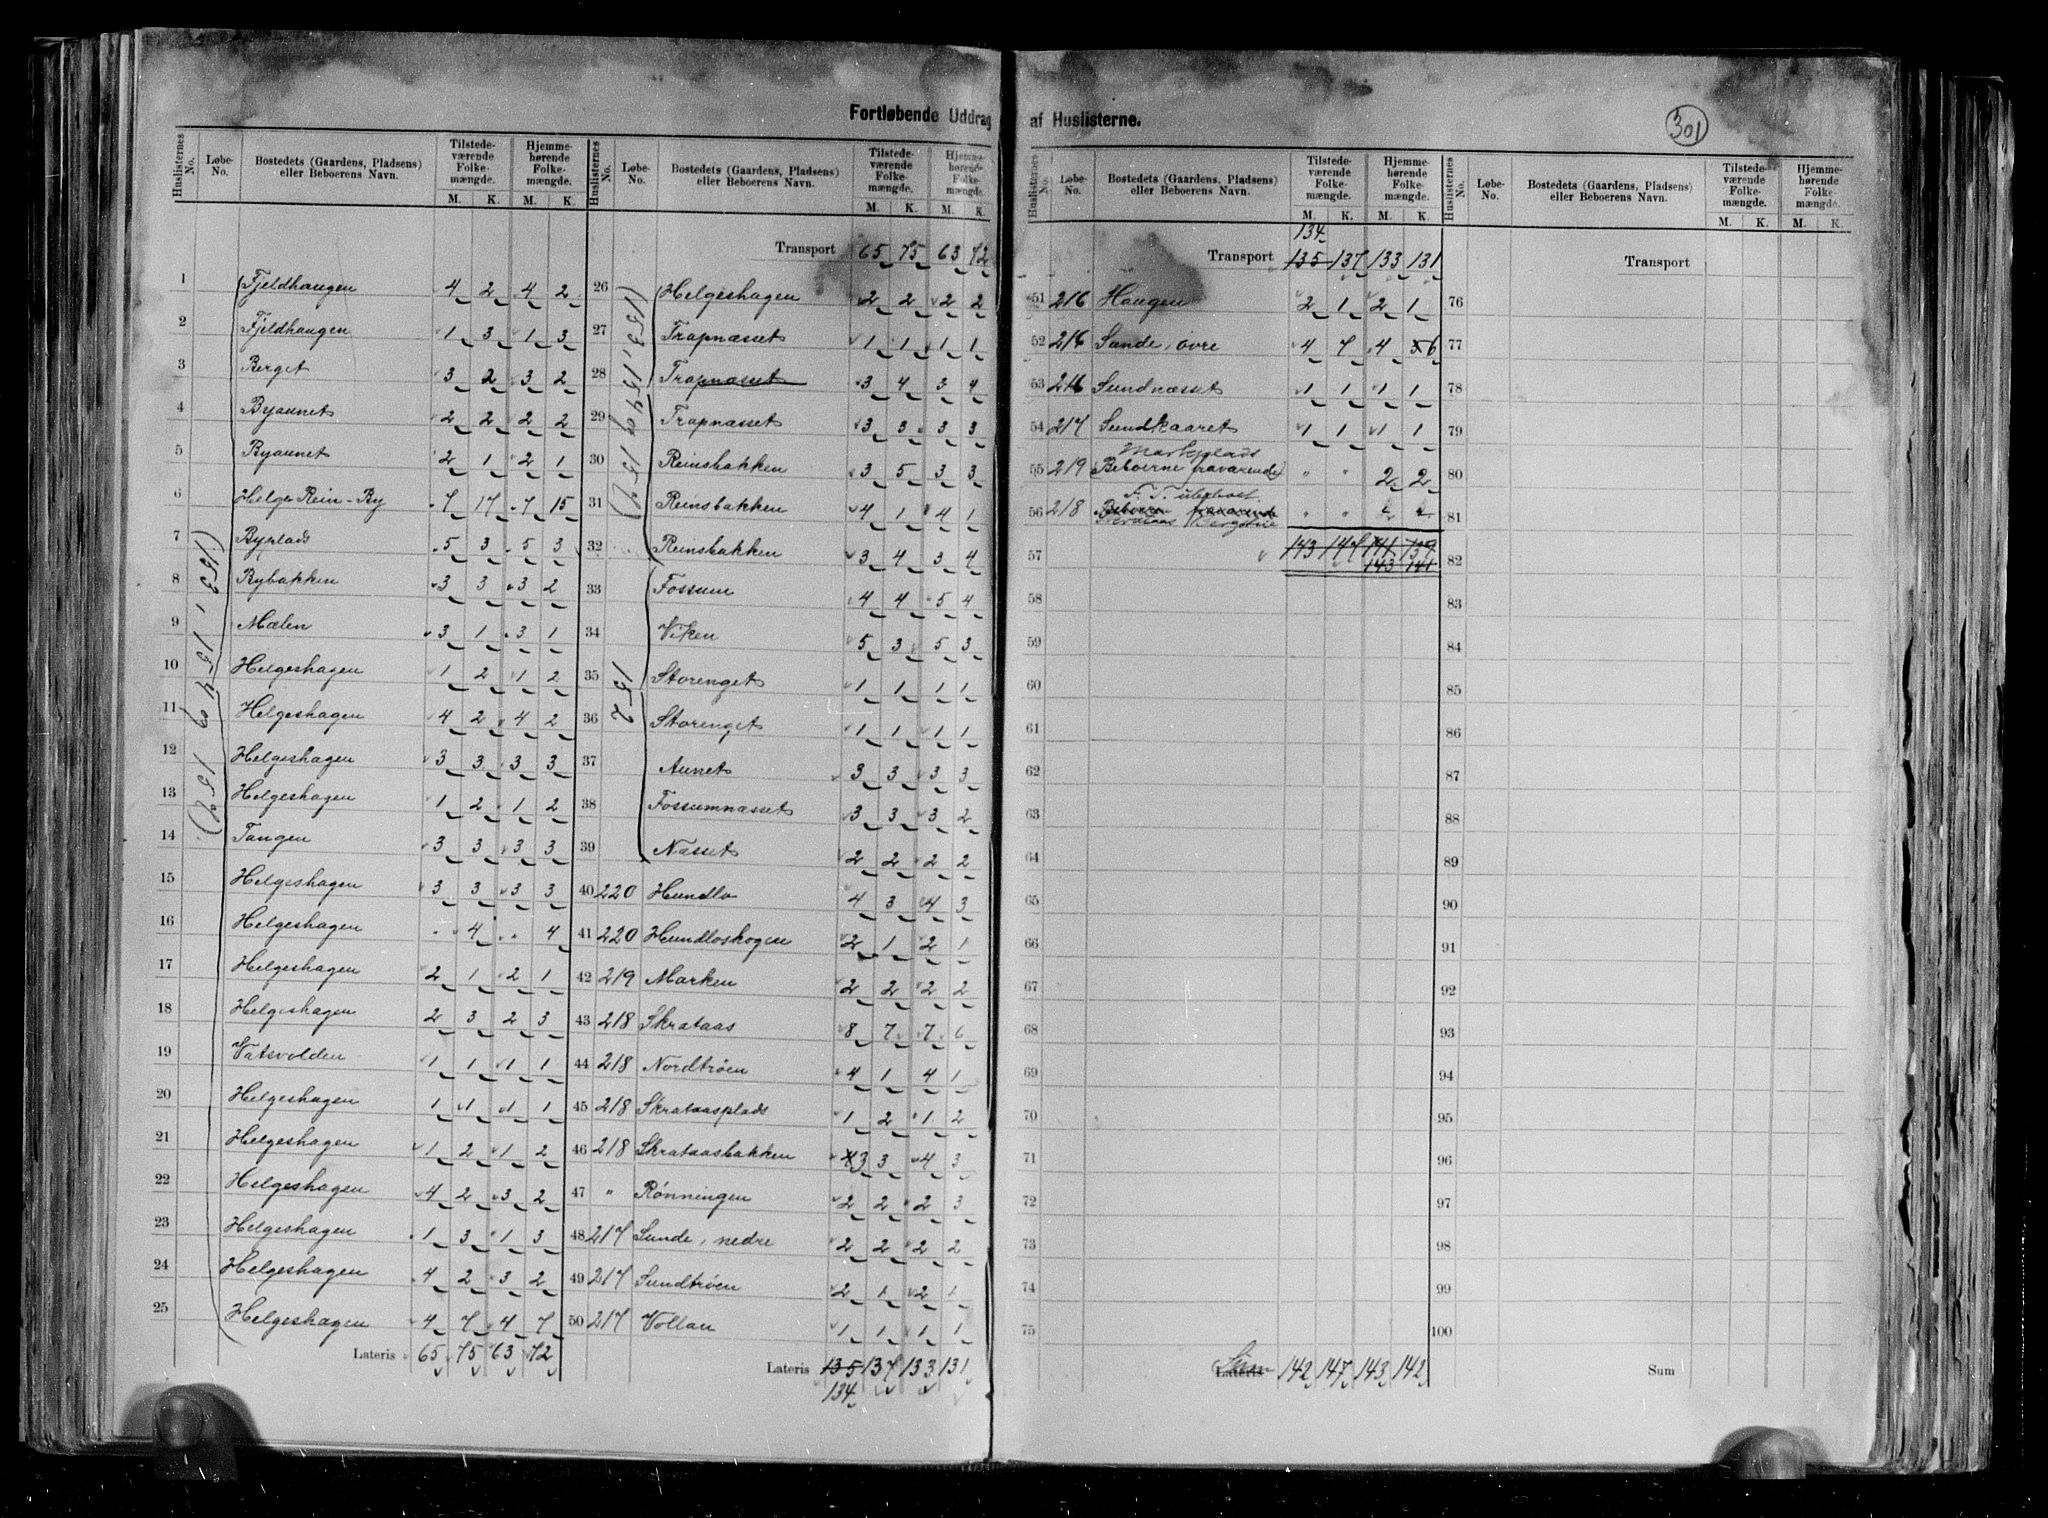 Fortløbende Uddrag af Huslisterne.
301
Huslisternes No. Løbe-No. Bostedets (Gaardens, Pladsens) eller Beboerens Navn. Tilstedeværende Folkemængde. M. K. Hjemmehørende Folkemængde. M. K.
(153, 154 og 157)
1 Fjeldhaugen 4 2 4 2
2 Fjeldhaugen 1 3 1 3
3 Berget 3 2 3 2
4 Byaunet 2 2 2 2
5 Byaunet 2 1 2 1
6 Helge Rein-By 7 17 7 15
7 Byplads 5 3 5 3
8 Bybakken 3 3 3 2
9 Mælen 3 1 3 1
10 Helgeshagen 1 2 1 2
11 Helgeshagen 4 2 4 2
12 Helgeshagen 3 3 3 3
13 Helgeshagen 1 2 1 2
14 Tangen 3 3 3 3
15 Helgeshagen 3 3 3 3
16 Helgeshagen " 4 " 4
17 Helgeshagen 2 1 2 1
18 Helgeshagen 2 3 2 3
19 Vatsvolden 1 1 1 1
20 Helgeshagen 1 1 1 1
21 Helgeshagen 1 2 1 2
22 Helgeshagen 4 2 3 2
23 Helgeshagen 1 3 1 3
24 Helgeshagen 4 2 3 2
25 Helgeshagen 4 7 4 7
Lateris 65 75 63 72
Huslisternes No. Løbe-No. Bostedets (Gaardens, Pladsens) eller Beboerens Navn. Tilstedeværende Folkemængde. M. K. Hjemmehørende Folkemængde. M. K.
Transport 65 75 63 72
(153, 154 og 157)
26 Helgeshagen 2 2 2 2
27 Trapnæsset 1 1 1 1
28 Trapnæsset 3 4 3 4
29 Trapnæsset 3 3 3 3
30 Reinsbakken 3 5 3 3
31 Reinsbakken 4 1 4 1
32 Reinsbakken 3 4 3 4
152
33 Fossum 4 4 5 4
34 Viken 5 3 5 3
35 Storenget 1 1 1 1
36 Storenget 1 1 1 1
37 Aunet 3 3 3 3
38 Fossumnæsset 3 3 3 2
39 Næsset 2 2 2 2
40 220 Hundlo 4 3 4 3
41 220 Hundloskogen 2 1 2 1
42 219 Marken 2 2 2 2
43 218 Skrataas 8 7 7 6
44 218 Nordtrøen 4 1 4 1
45 218 Skrataasplads 1 2 1 2
46 218 Skrataasbakken 4 3 3 4 3
47 " Rønningen 2 2 2 3
48 217 Sunde, nedre 2 2 2 2
49 217 Sundtrøen 2 1 2 1
50 217 Vollan 1 1 1 1
Lateris 135 137 133 131
134
Huslisternes No. Løbe-No. Bostedets (Gaardens, Pladsens) eller Beboerens Navn. Tilstedeværende Folkemængde. M. K. Hjemmehørende Folkemængde. M. K.
134
Transport 135 137 133 131
51 216 Haugen 2 1 2 1
52 216 Sunde, øvre 4 7 4 5 6
53 216 Sundnæsset 1 1 1 1
54 217 Sundkaaret 1 1 1 1
Markplads
55 219 (Beboerne fraværende) " " 2 2
56 218 Beboeren fraværende " "
57 143 147 141 139
143 141
58
59
60
61
62
63
64
65
66
67
68
69
70
71
72
73
74
75
Sum Lateris 142 147 143 142
Huslisternes No. Løbe-No. Bostedets (Gaardens, Pladsens) eller Beboerens Navn. Tilstedeværende Folkemængde. M. K. Hjemmehørende Folkemængde. M. K.
Transport
76
77
78
79
80
81
82
83
84
85
86
87
88
89
90
91
92
93
94
95
96
97
98
99
100
Sum